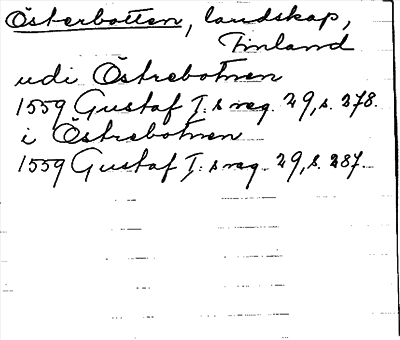 Österbotten, landskap,
Finland
udi Östrebotnen
1559 Gustaf I:s reg. 29, s. 278.
i Östrebotnen
1559 Gustaf I:s reg. 29, s. 287.